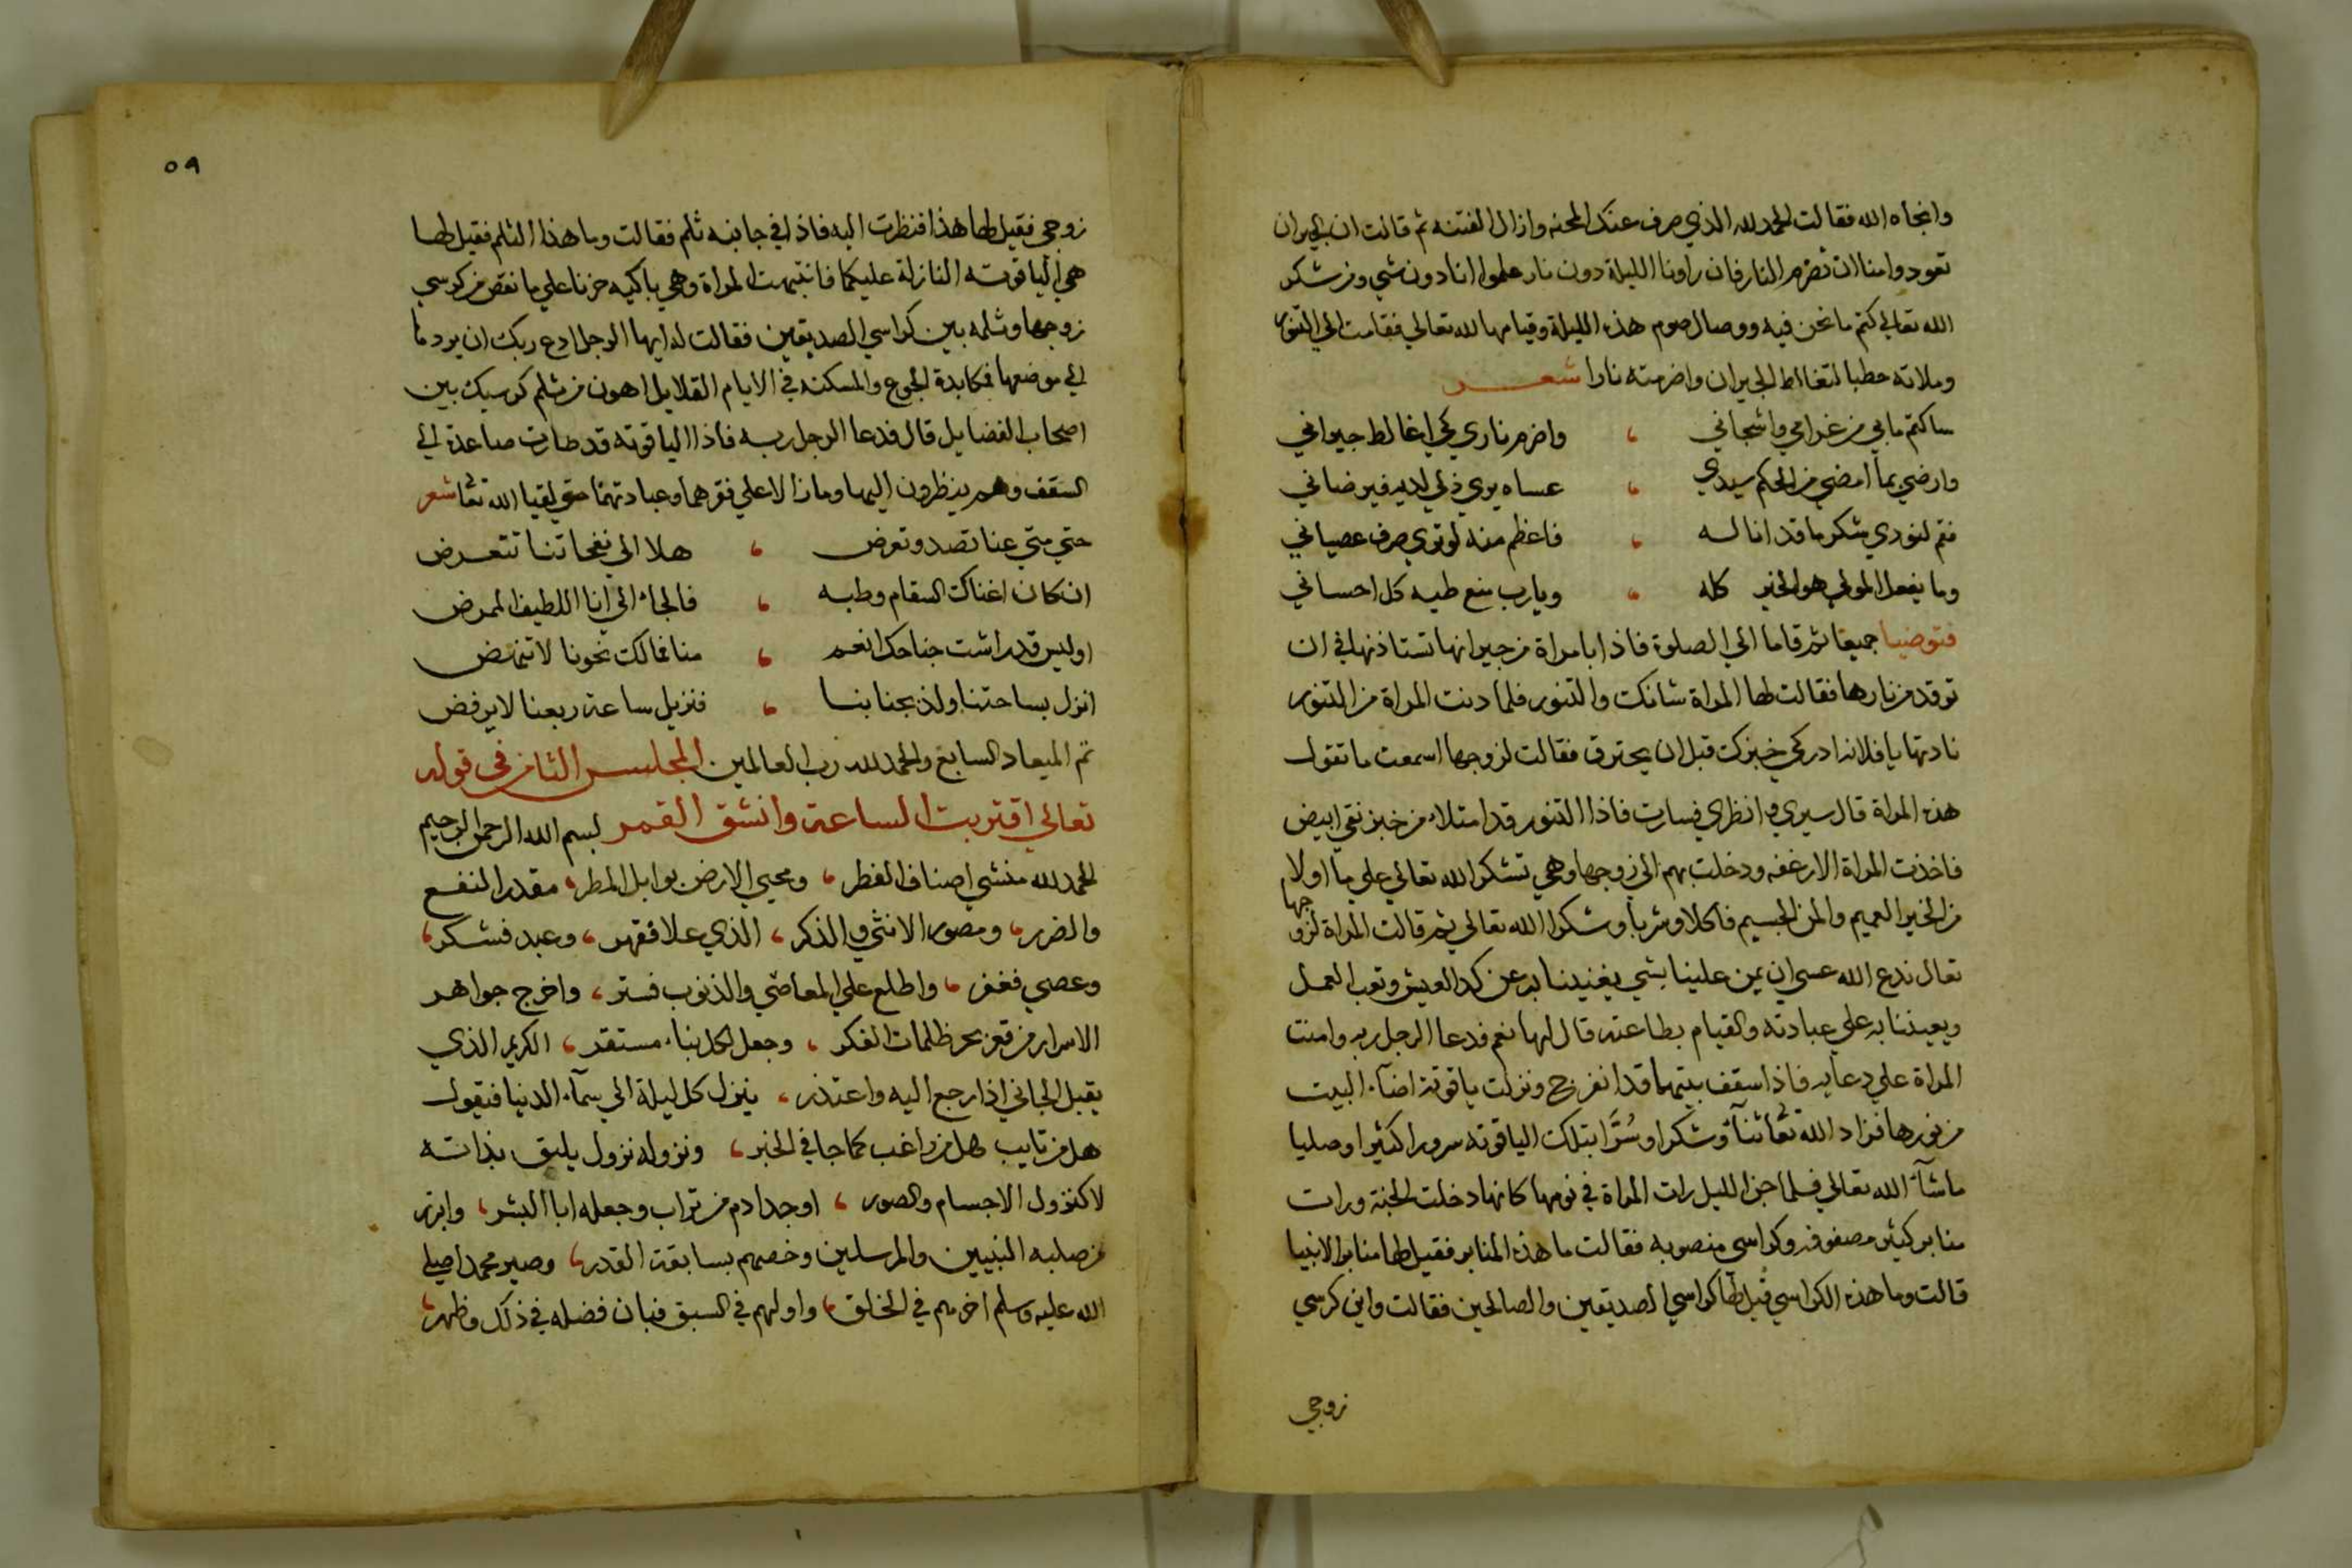 وانجاه الله فقالت الحمد لله الذي صرف عنك المحنه وازال الفتنه ثم قالت ان الجيران
تعودوا منا ان نضرم النار فان راونا الليلة دون نار علموا اننا دون شي ومن شكر
الله تعالي كتم ما نحن فيه ووصال صوم هذه الليلة وقيامها لله تعالي فقامت الي التنور
وملاته حطبا لتغالط الجيران واضرمته نارا شعر
ساكتم ما بي من غرامي واشجاني ، واضرم ناري كي اغالط جيراني
وارضي بما امضي من الحكم سيدي ، عساه يري ذلي لديه فيرضاني
فقم لنودي شكر ما قد انا له ، فاعظم منه لو نوي صرف عصياني
وما يفعل المولي هو الخير كله ، ويارب منع طيه كل احساني
فتوضيا جميعا ثم قاما الي الصلوة فاذا بامراة من جيرانها تستاذنها في ان
توقد من نارها فقالت لها المراة شانك والتنور فلما دنت المراة من التنور
نادتها يا فلانه ادركي خبزك قبل ان يحترق فقالت لزوجها اسمعت ما تقول
هذه المراة قال سيري وانظري فسارت فاذا التنور قد امتلاء من خبز نقي ابيض
فاخذت المراة الارغفه ودخلت بهم الي زوجها وهي تشكر الله تعالي علي ما اولا
من الخير العميم والمن الجسيم فاكلا وشربا وشكرا الله تعالي ثم قالت المراة لزوجها
تعال ندع الله عسي ان يمن علينا بشي يغنينا به عن كد العيش وتعب العمل
ويعيننا به علي عبادته والقيام بطاعته قال لها نعم فدعا الرجل ربه وامنت
المراة علي دعايه فاذا سقف بيتهما قد انفرج ونزلت ياقوتة اضآء البيت
من نورها فزاد الله تعا ثنآء وشكرا وسُرّا بتلك الياقوته سرورا كثيرا وصليا
ما شآء الله تعالي فلما جن الليل رات المراة في نومها كانها دخلت الجنة ورات
منابر كثير مصفوفه وكراسي منصوبه فقالت ما هذه المنابر فقيل لها منابر الانبيا
قالت وما هذه الكراسي قيل لها كراسي الصديقين والصالحين فقالت واين كرسي
زوجي
٥٩
زوجي فقيل لها هذا فنظرت اليه فاذا في جانبه ثلم فقالت وما هذا الثلم فقيل لها
هي الياقوته النازلة عليكما فانتبهت المراة وهي باكيه حزنا علي ما نقص من كرسي
زوجها وثلمه بين كراسي الصديقين فقالت له ايها الرجل ادع ربك ان يردها
الي موضعها فمكابدة الجوع والمسكنه في الايام القلايل اهون من ثلم كرسيك بين
اصحاب الفضايل قال فدعا الرجل ربه فاذا الياقوته قد طارت صاعدة الي
السقف وهم ينظرون اليها وما زالا علي فقرهما وعبادتهما حتي لقيا الله تعا شعر
حتي متي عنا تصد وتعرض ، هلا الي نفحاتنا تتعرض
ان كان اعناك السقام وطبه ، فالجاء الي انا اللطيف الممرض
اوليس قد راشت جناحك انعم ، منا فمالك نحونا لا تنهض
انزل بساحتنا ولذ بجنابنا ، فنزيل ساعة ربعنا لا يرفض
تم الميعاد السابع والحمد لله رب العالمين المجلس الثامن في قوله
تعالي اقتربت الساعة وانشق القمر بسم الله الرحمن الرحيم
الحمد لله منشي اصناف الفطر ، ومحيي الارض بوابل المطر ، مقدر النفع
والضرر ، ومصور الانثي والذكر ، الذي علا فقهر ، وعبد فشكر ،
وعصي فغفر ، واطلع علي المعاصي والذنوب فستر ، واخرج جواهر
الاسرار من قعر بحر ظلمات الفكر ، وجعل لكل نباء مستقر ، الكريم الذي
يقبل الجاني اذا رجع اليه واعتذر ، ينزل كل ليلة الي سمآء الدنيا فيقول
هل من تايب هل من راغب كما جا في الخبر ، ونزوله نزول يليق بذاته
لا كنزول الاجسام والصور ، اوجد ادم من تراب وجعله ابا البشر ، وابرز
من صلبه النبيين والمرسلين وخصهم بسابقة القدر ، وصير محمدا صلي
الله عليه وسلم اخرهم في الخلق ، واولهم في السبق فبان فضله في ذلك وظهر ،